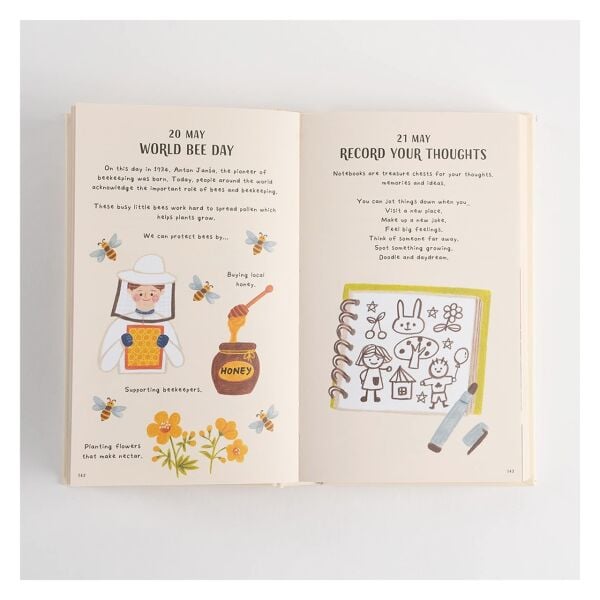 20 MAY
WORLD BEE DAY
On this day in 1734, Anton Janša, the pioneer of
beekeeping was born. Today, people around the world
acknowledge the important role of bees and beekeeping.
These busy little bees work hard to spread pollen which
helps plants grow.
We can protect bees by...
Buying local
honey.
HONEY
Supporting beekeepers.
Planting flowers
that make nectar.
142
21 MAY
RECORD YOUR THOUGHTS
Notebooks are treasure chests for your thoughts,
memories and ideas.
You can jot things down when you...
Visit a new place,
Make up a new joke,
Feel big feelings,
Think of someone far away,
Spot something growing,
Doodle and daydream.
143